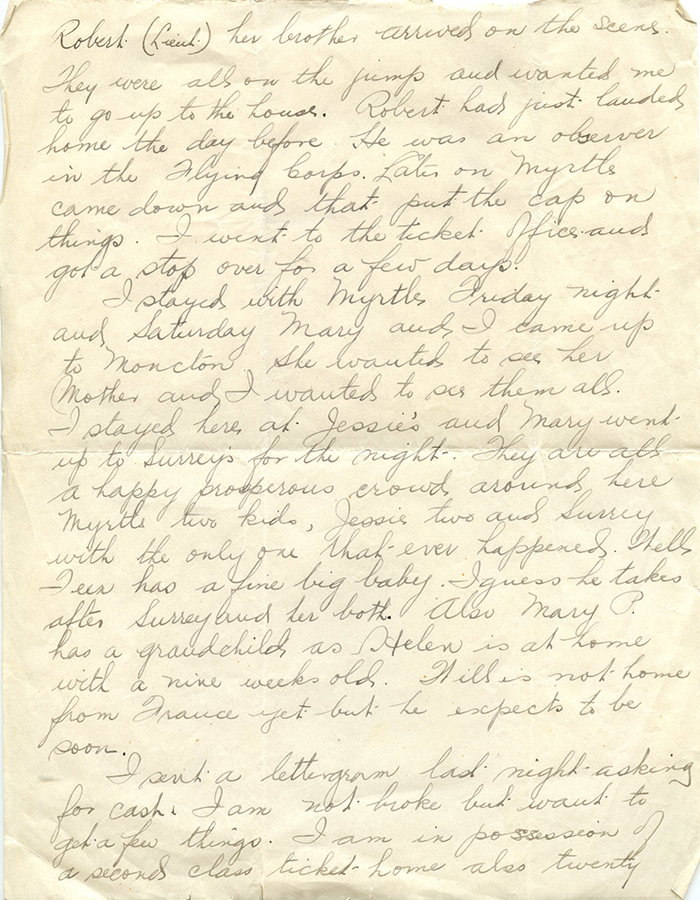 Robert (Lieut.) her brother arrived on the scene.
They were all on the jump and wanted me
to go up to the house. Robert had just landed
home the day before. He was an observer
in the Flying Corps. Later on Myrtle
came down and that put the cap on
things. I went to the ticket office and
got a stop over for a few days.
I stayed with Myrtle Friday night
and Saturday Mary and I came up
to Moncton. She wanted to see her
Mother and I wanted to see them all.
I stayed here at Jessie's and Mary went
up to Surrey's for the night. They are all
a happy prosperous crowd around here
Myrtle two kids, Jessie two and Surrey
with the only one that ever happened. Well
has a fine big baby. I guess he takes
after Surrey and her both. Also Mary P.
has a grandchild as Helen is at home
with a nine weeks old. Will is not home
from France yet but he expects to be
soon.
I sent a lettergram last night asking
for cash. I am not broke but want to
get a few things. I am in possession of
a second class ticket home also twenty